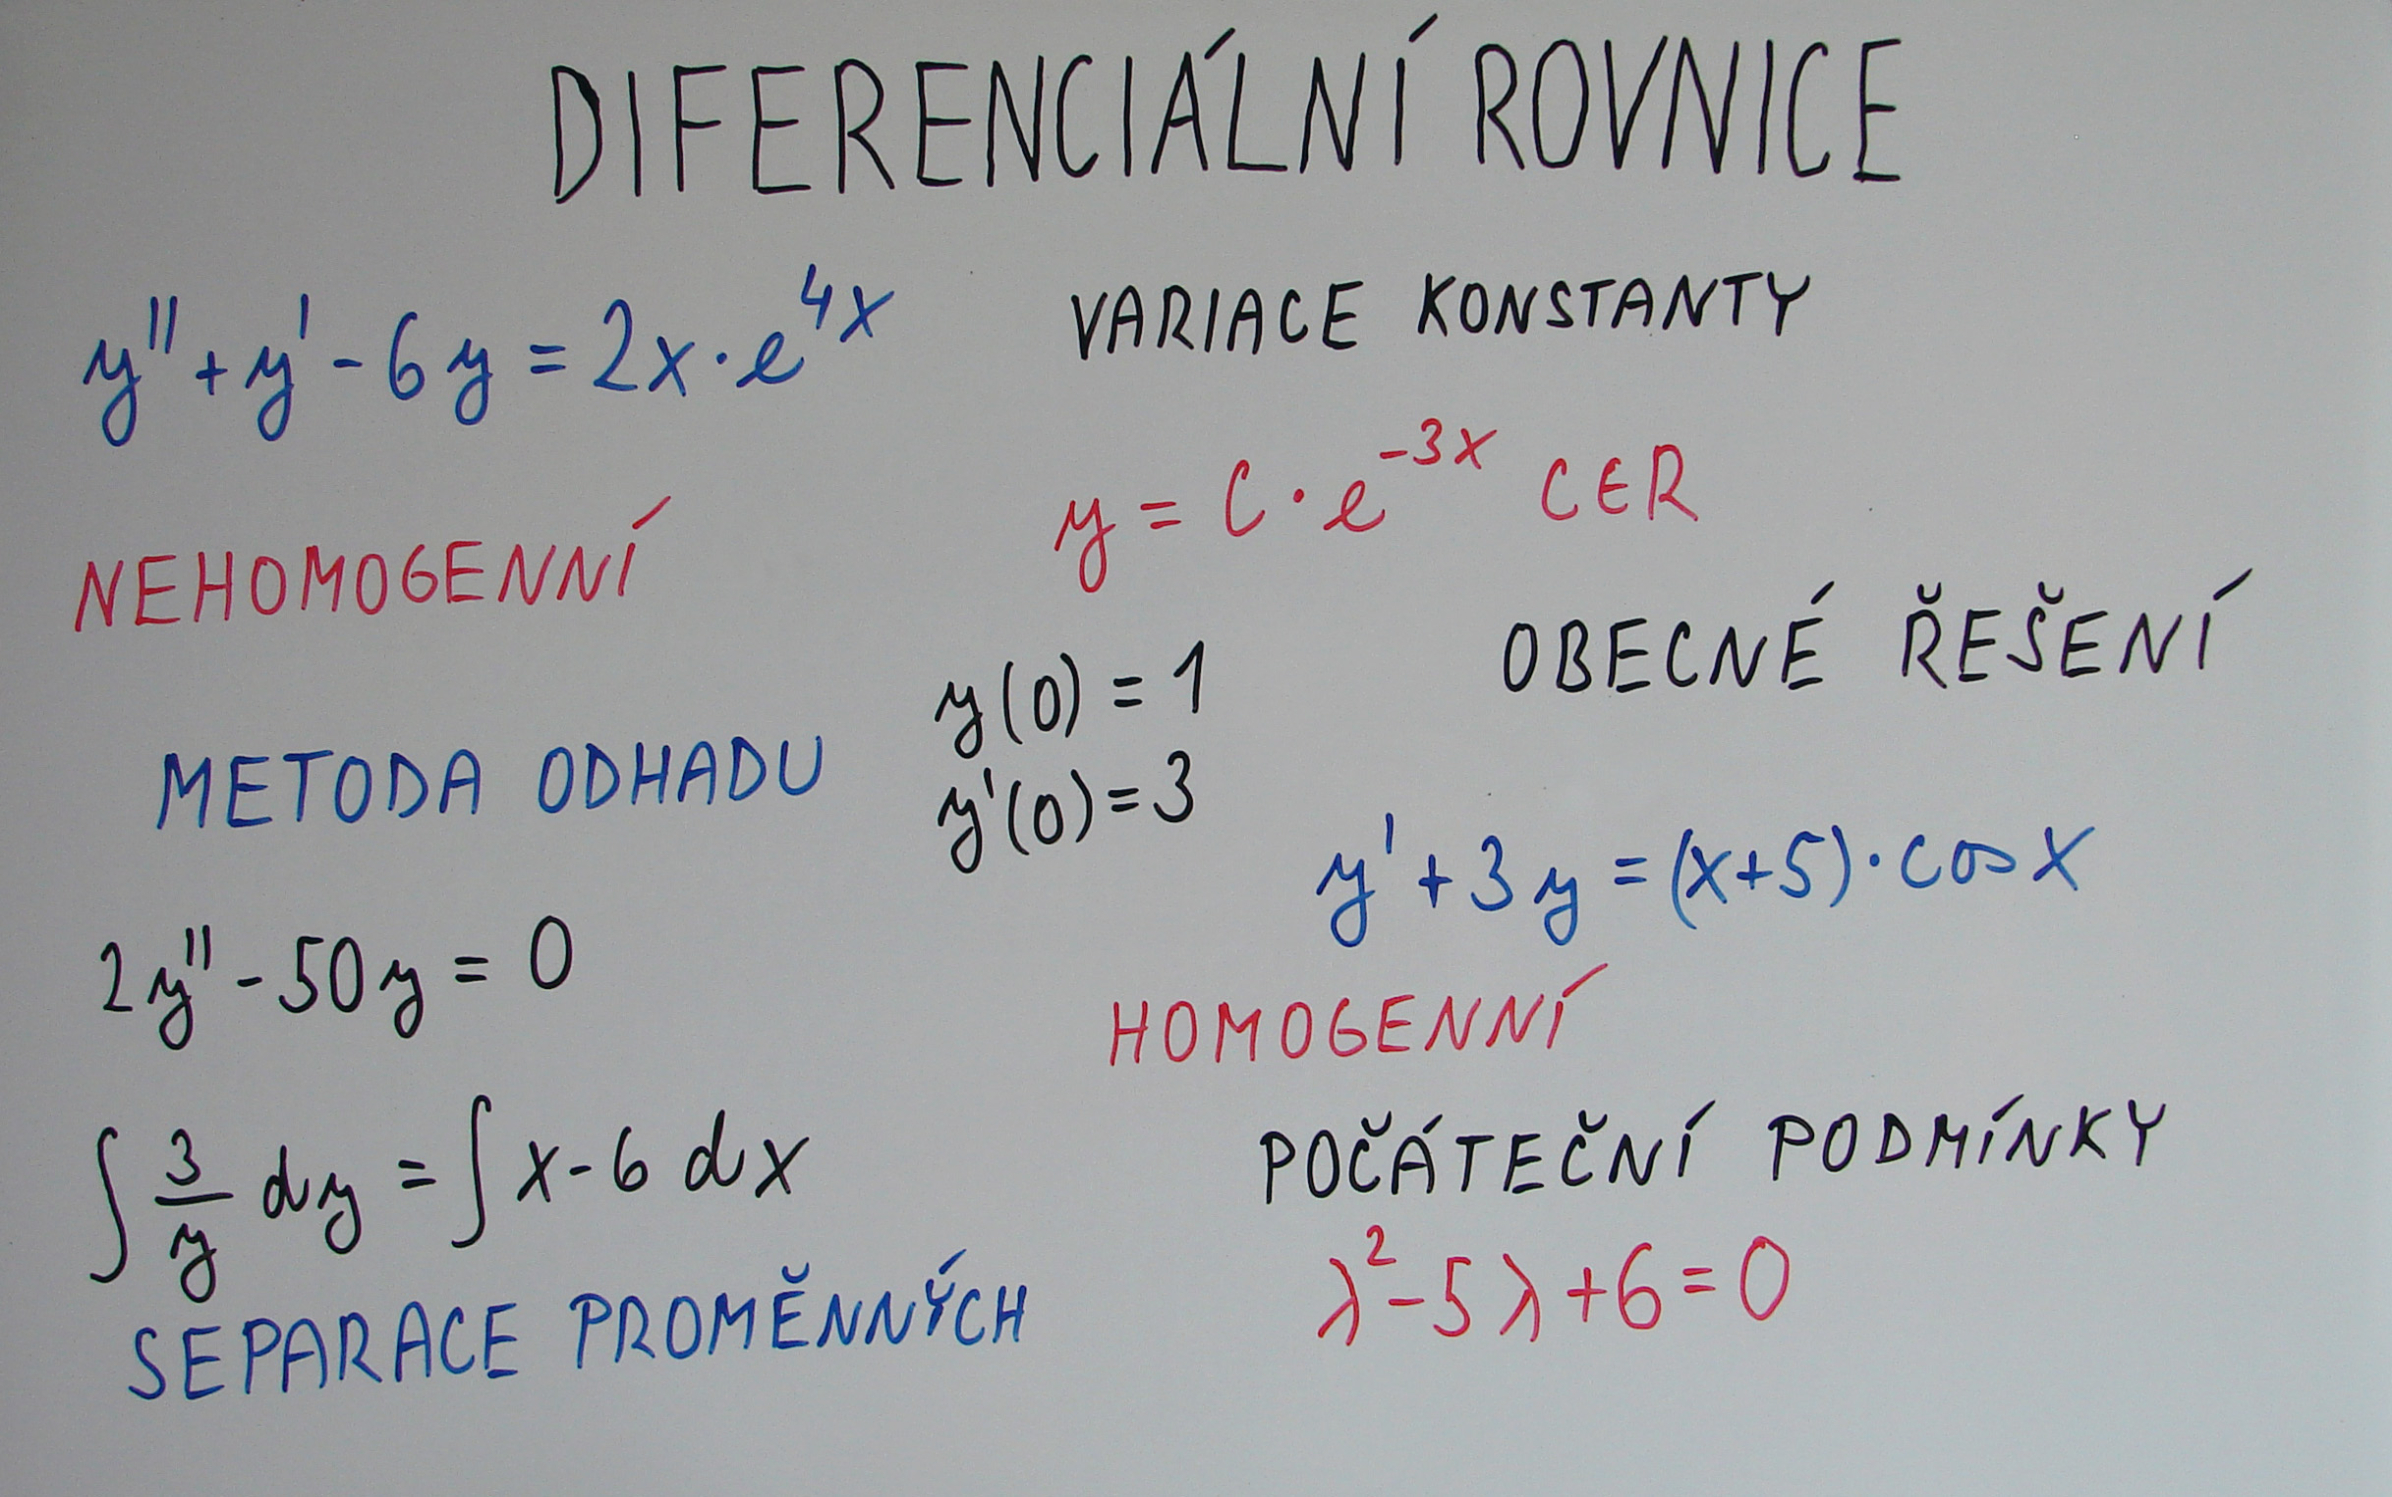 DIFERENCIÁLNÍ ROVNICE
y'' + y' - 6y = 2x · e^4x
VARIACE KONSTANTY
y = C · e^-3x C∈R
NEHOMOGENNÍ
OBECNÉ ŘEŠENÍ
y(0) = 1
METODA ODHADU
y'(0) = 3
y' + 3y = (x+5) · cos x
2y'' - 50y = 0
HOMOGENNÍ
∫ 3/y dy = ∫ x - 6 dx
POČÁTEČNÍ PODMÍNKY
λ² - 5λ + 6 = 0
SEPARACE PROMĚNNÝCH